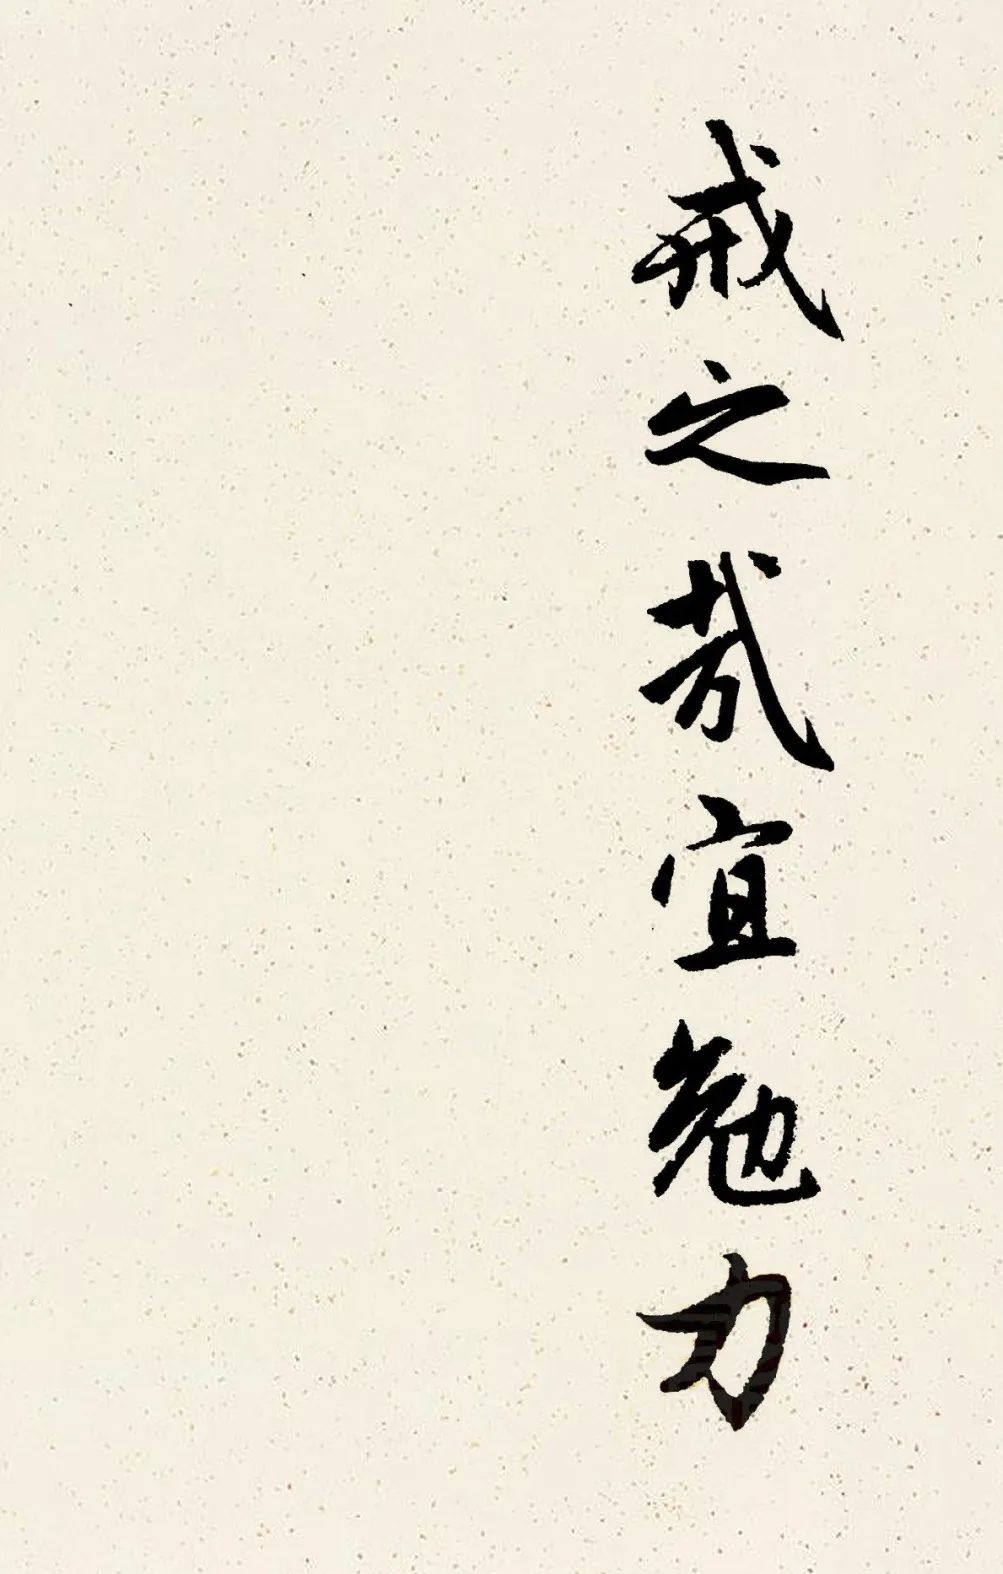 戒之哉宜勉力